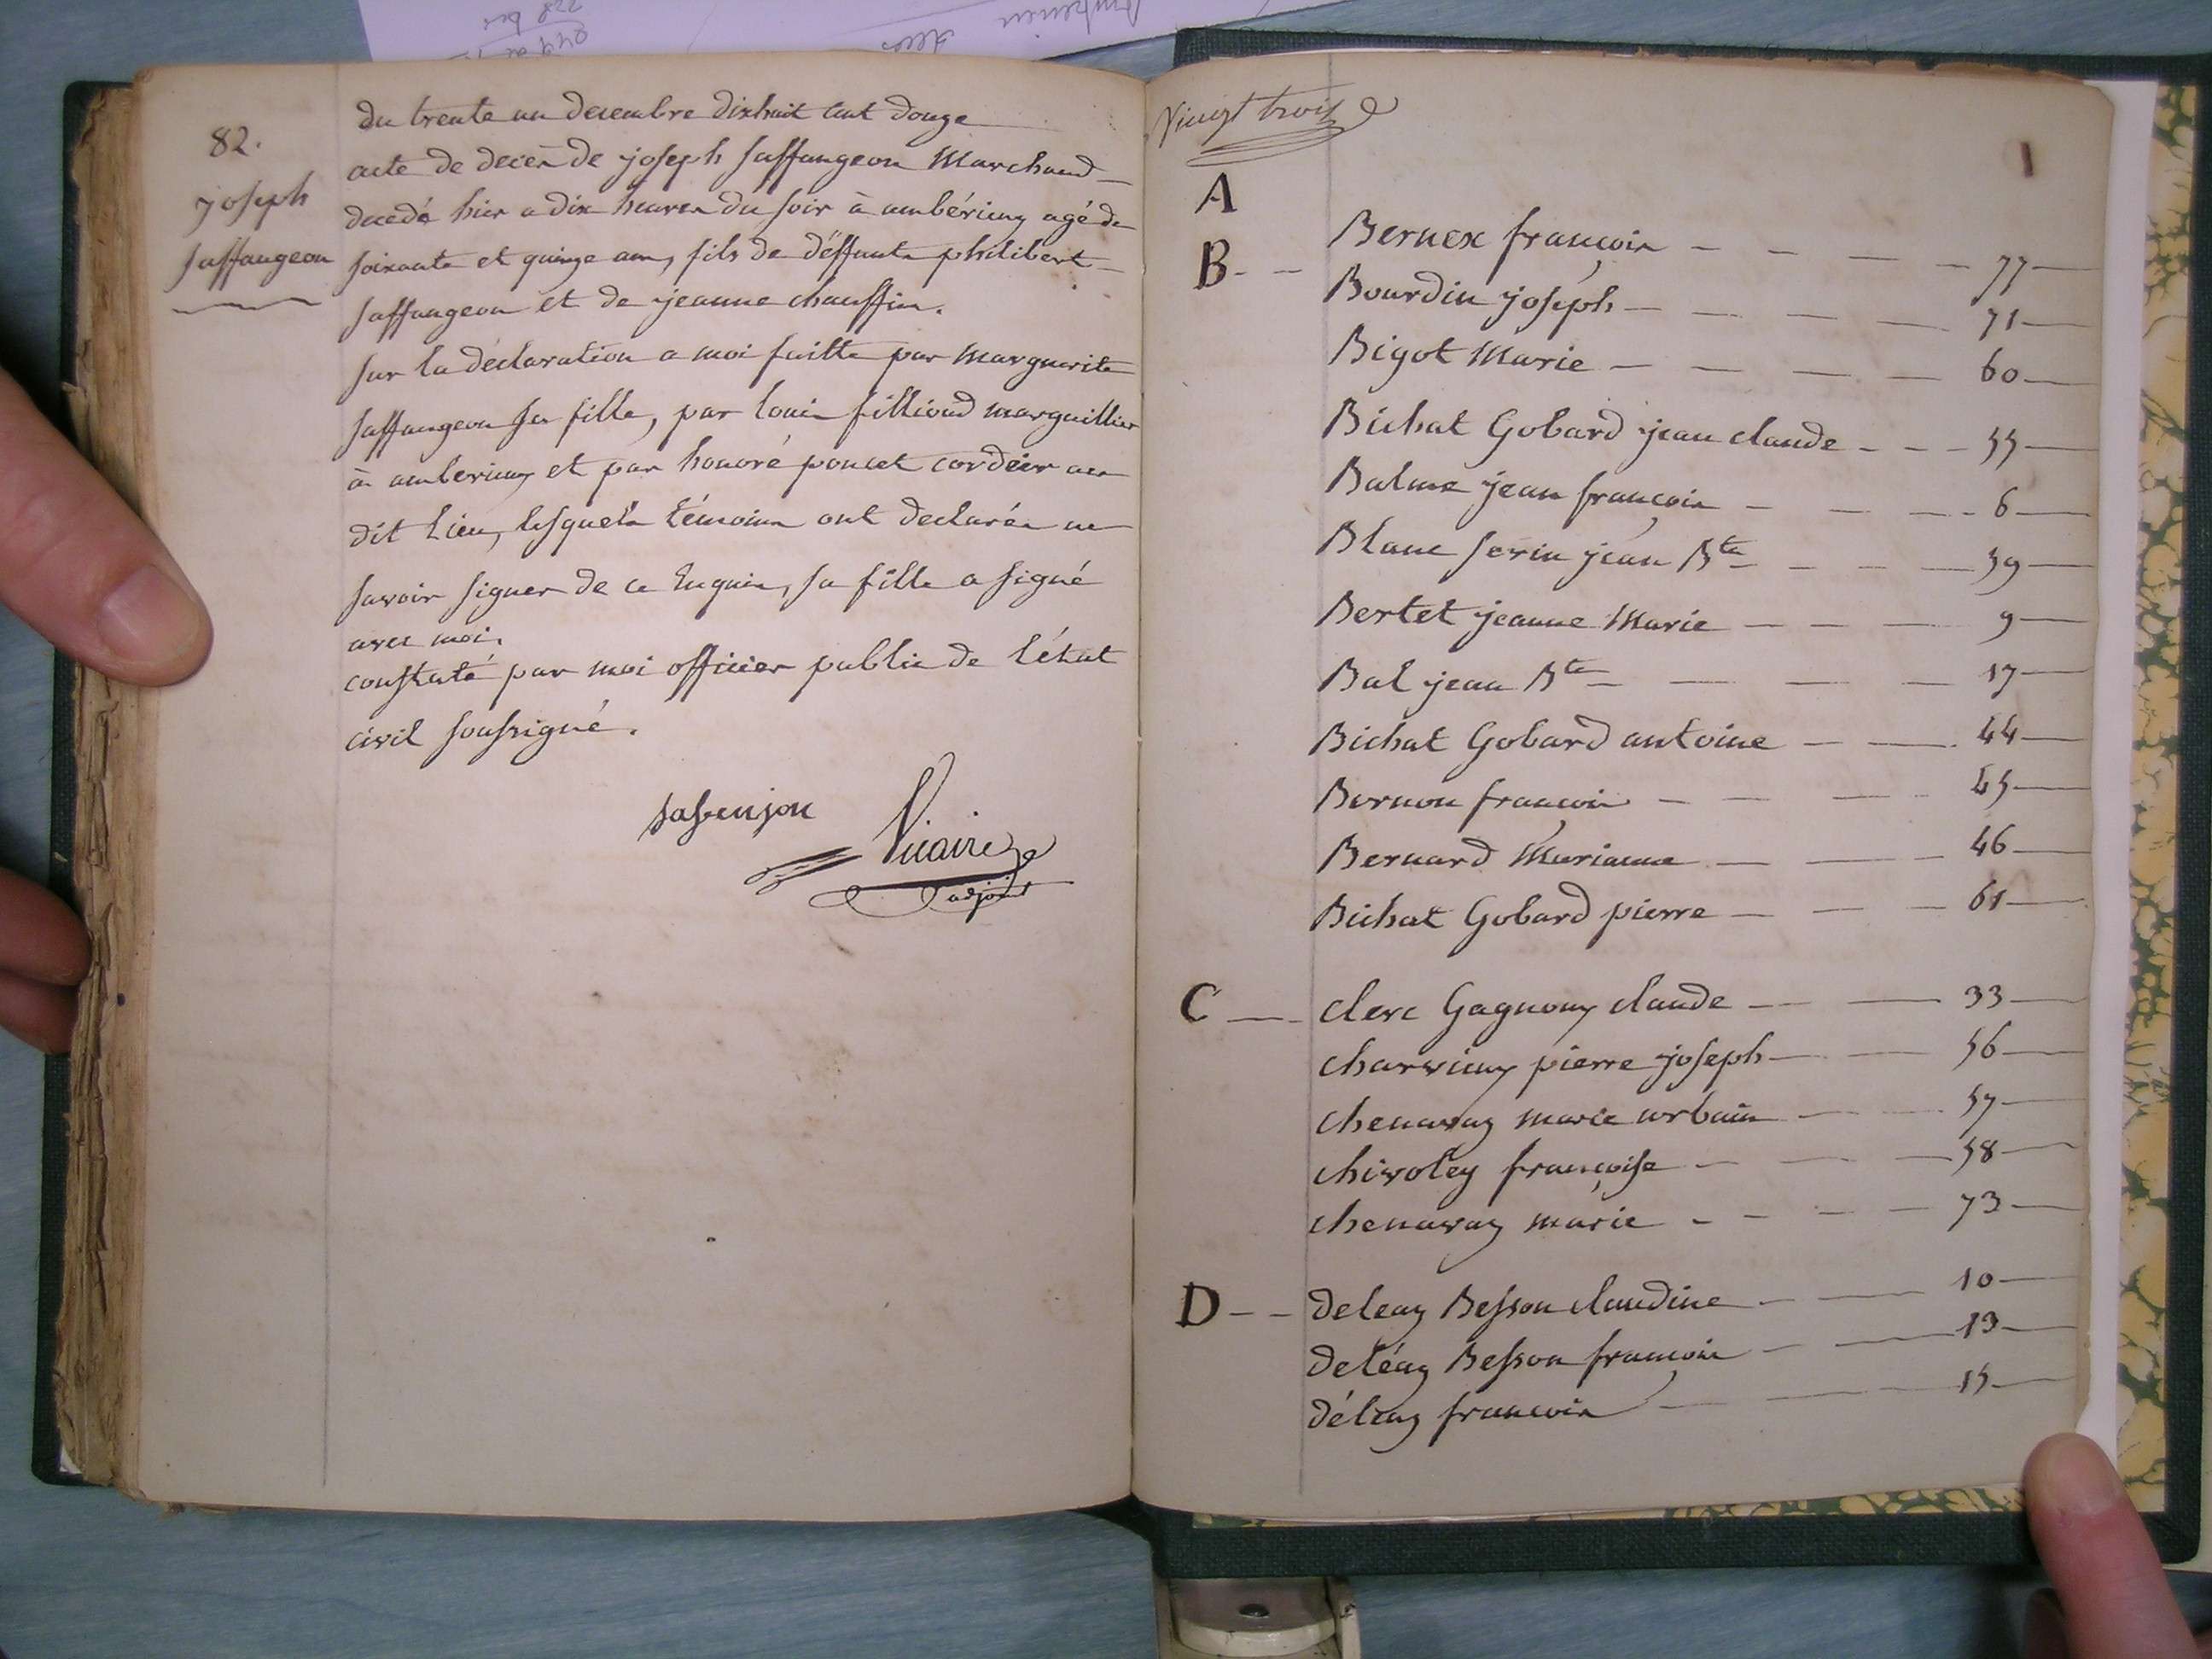 82.
joseph
saffangeon
du trente un decembre dixhuit cent douze
acte de decès de joseph saffangeon Marchand
decedé hier a dix heures du soir à ambérieux agé de
soixante et quinze ans, fils de déffunts philibert
saffangeon et de jeanne chauffin.
sur la déclaration a moi faitte par Marguerite
saffangeon sa fille, par louis fillioud marguillier
à amberieux et par honoré poncet cordier au
dit Lieu, lesquels témoins ont declarés ne
savoir signer de ce Enquis, sa fille a signé
avec moi.
constaté par moi officier public de L'état
civil soussigné.
safenjon
Vicaire
adjoint
Vingt trois
A
B
Bernex françois 77
Bourdin joséph 71
Bigot Marie 60
Bichat Gobard jean claude 55
Balme jean françois 6
Blanc serin jean Bte 39
Bertet jeanne Marie 9
Bal jean Bte 17
Bichat Gobard antoine 44
Bernon françois 45
Bernard Marianne 46
Bichat Gobard pierre 61
C clerc Gagnoux claude 33
charvieux pierre joseph 56
chenavaz marie urbain 57
chivoley françoise 58
chenavaz marie 73
D deleaz Besson claudine 10
deléaz Besson françois 13
déleaz françois 15